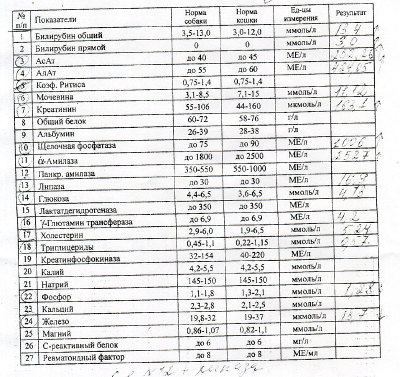 № п/п Показатели Норма собаки Норма кошки Ед-цы измерения Результат
1 Билирубин общий 3,5-13,0 3,0-12,0 ммоль/л 13,4
2 Билирубин прямой 0 0 ммоль/л 3,0
3 АсАт до 40 до 45 МЕ/л
4 АлАт до 55 до 60 МЕ/л
5 Коэф. Ритиса 0,75-1,4 0,75-1,4
6 Мочевина 3,1-8,5 7,1-15 ммоль/л 11,12
7 Креатинин 55-106 44-160 мкмоль/л
8 Общий белок 60-72 58-76 г/л
9 Альбумин 26-39 28-38 г/л
10 Щелочная фосфатаза до 75 до 90 МЕ/л
11 α-Амилаза до 1800 до 2500 МЕ/л
12 Панкр. амилаза 350-550 550-1000 МЕ/л
13 Липаза до 30 до 30 МЕ/л
14 Глюкоза 4,4-6,5 3,6-6,5 ммоль/л
15 Лактатдегидрогеназа до 350 до 350 МЕ/л
16 γ-Глютамин трансфераза до 6,9 до 6,9 МЕ/л 4,2
17 Холестерин 2,9-6,0 1,9-6,5 ммоль/л 5,24
18 Триглицериды 0,45-1,1 0,22-1,15 ммоль/л
19 Креатинфосфокиназа 32-154 40-220 МЕ/л
20 Калий 4,2-5,5 4,2-5,5 ммоль/л
21 Натрий 145-150 145-150 ммоль/л
22 Фосфор 1,1-1,8 1,3-2,1 ммоль/л
23 Кальций 2,3-2,8 2,1-2,5 ммоль/л
24 Железо 19,8-32 19-37 мкмоль/л
25 Магний 0,86-1,07 0,82-1,1 ммоль/л
26 С-реактивный белок до 6 до 6 мг/л
27 Ревматоидный фактор до 8 до 8 МЕ/мл